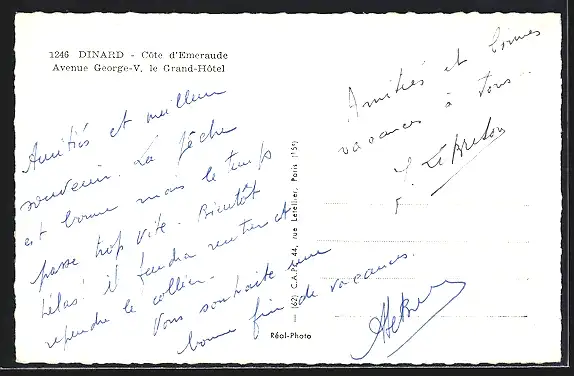 1246 DINARD - Côte d'Emeraude
Avenue George-V, le Grand-Hôtel
Amitiés et meilleur
souvenir. La pêche
est bonne mais le temps
passe trop vite. Bientôt
hélas! il faudra rentrer et
reprendre le collier.
Vous souhaite une
bonne fin de vacances.
Amitiés et bonnes
vacances à tous
Le Breton
(62) C.A.P. 44, rue Letellier, Paris (15e)
Réal-Photo